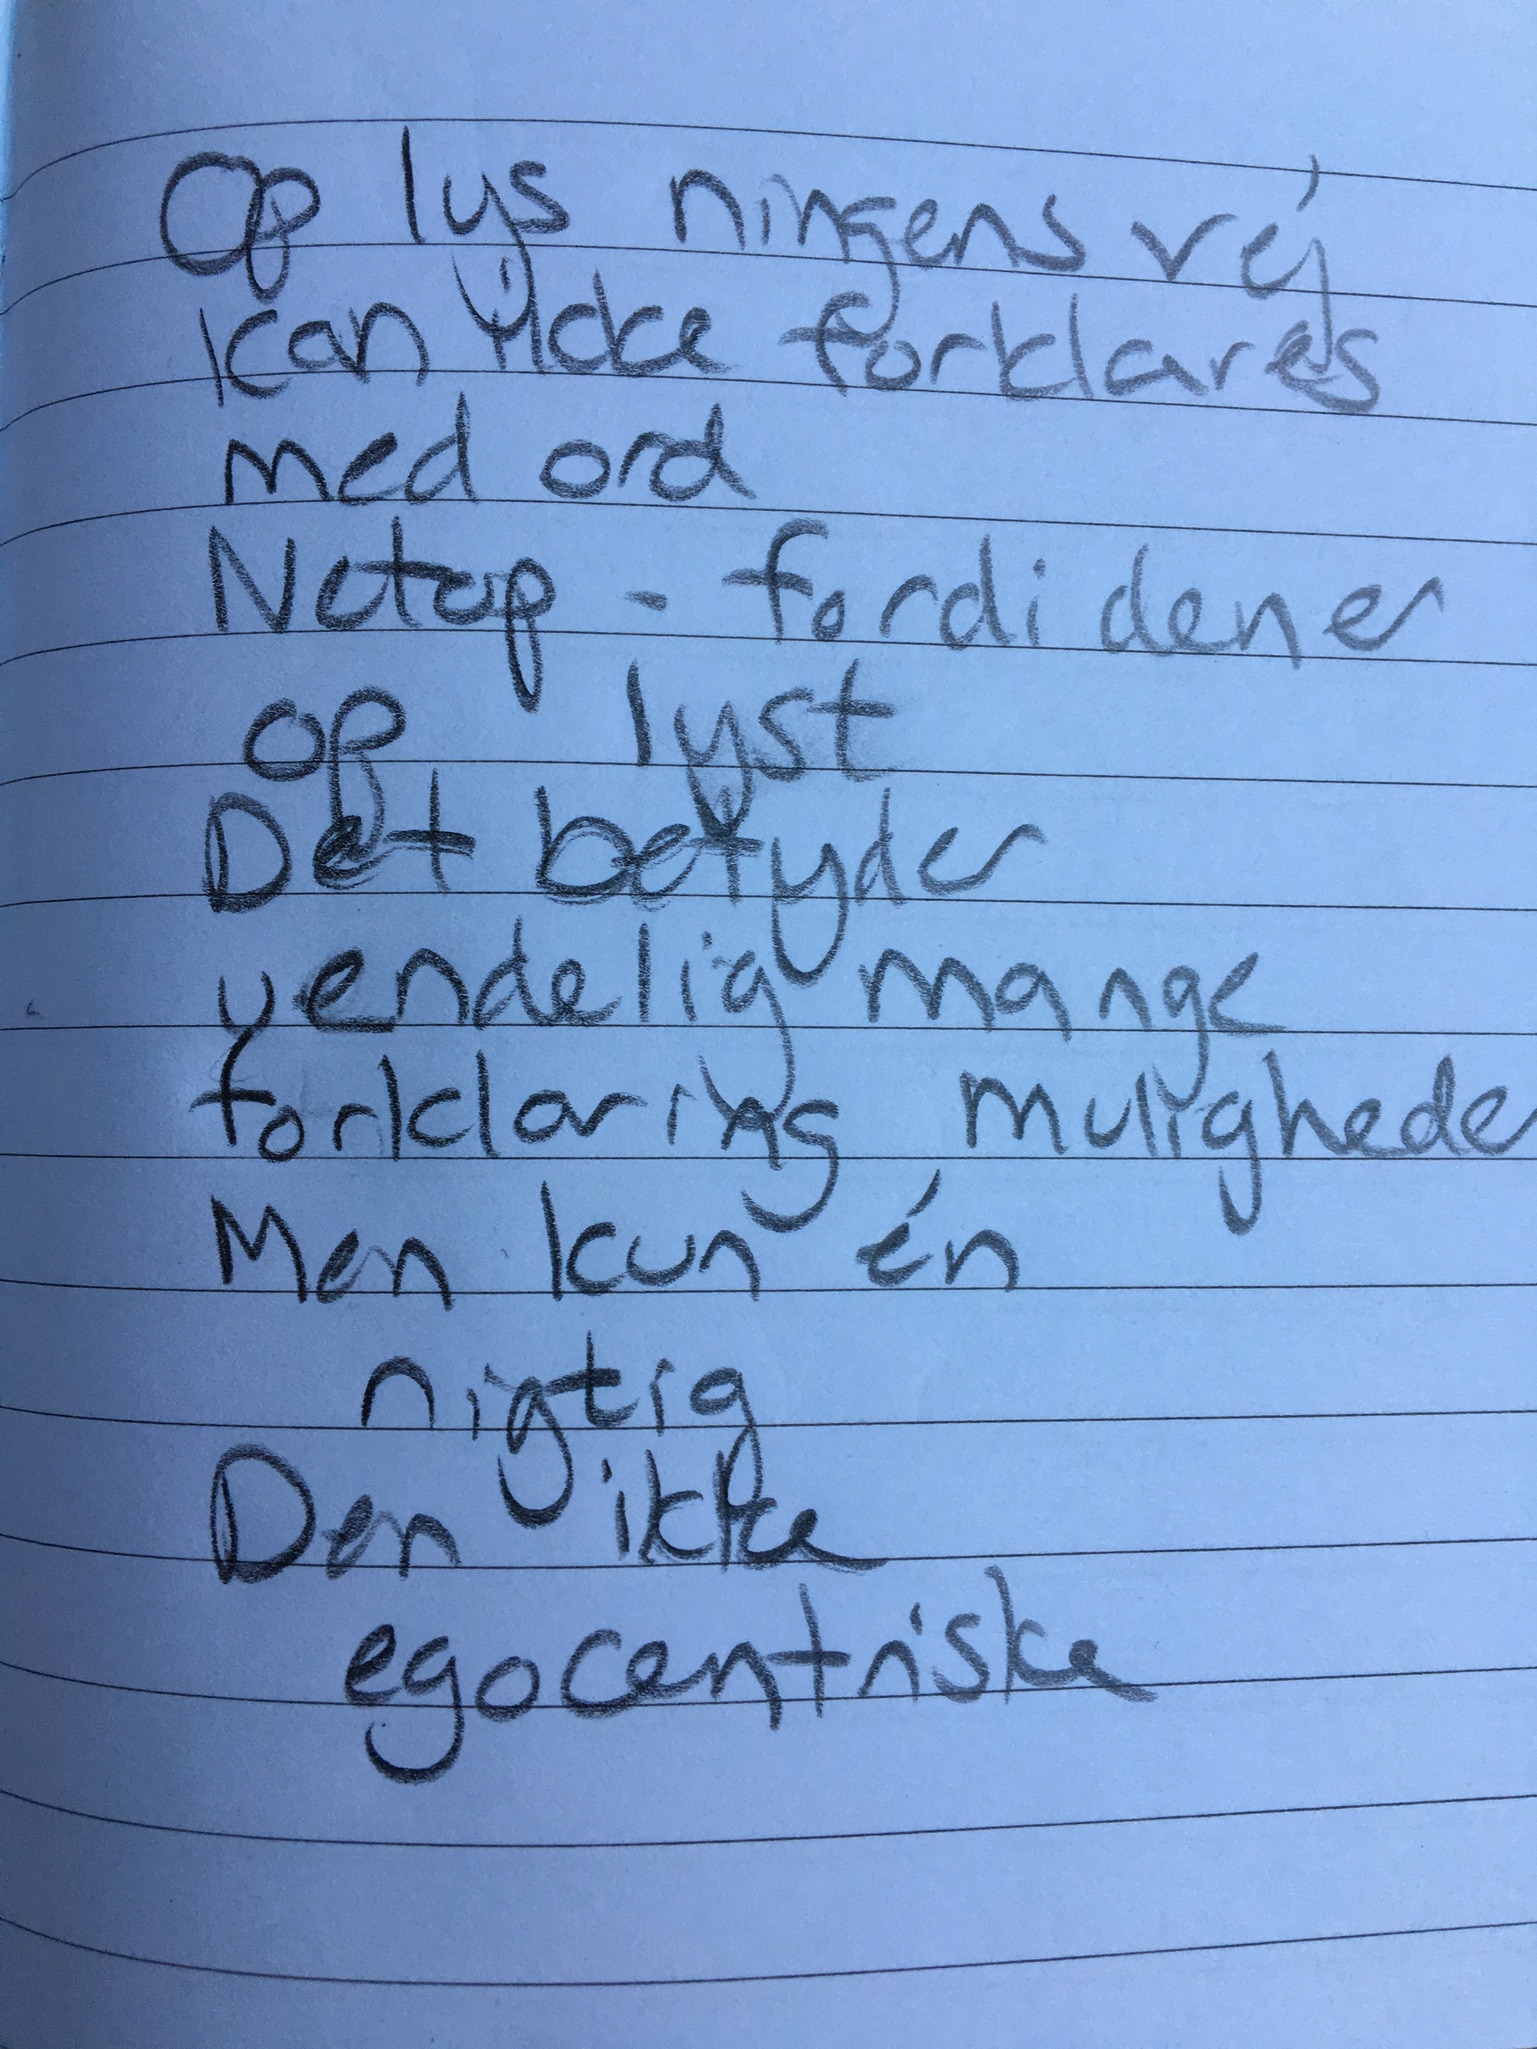 Op lys ningens véj
kan ikke forklares
med ord
Netop - fordi den er
op lyst
Det betyder
uendelig mange
forklaring muligheder
Men kun én
rigtig
Den ikke
egocentriske